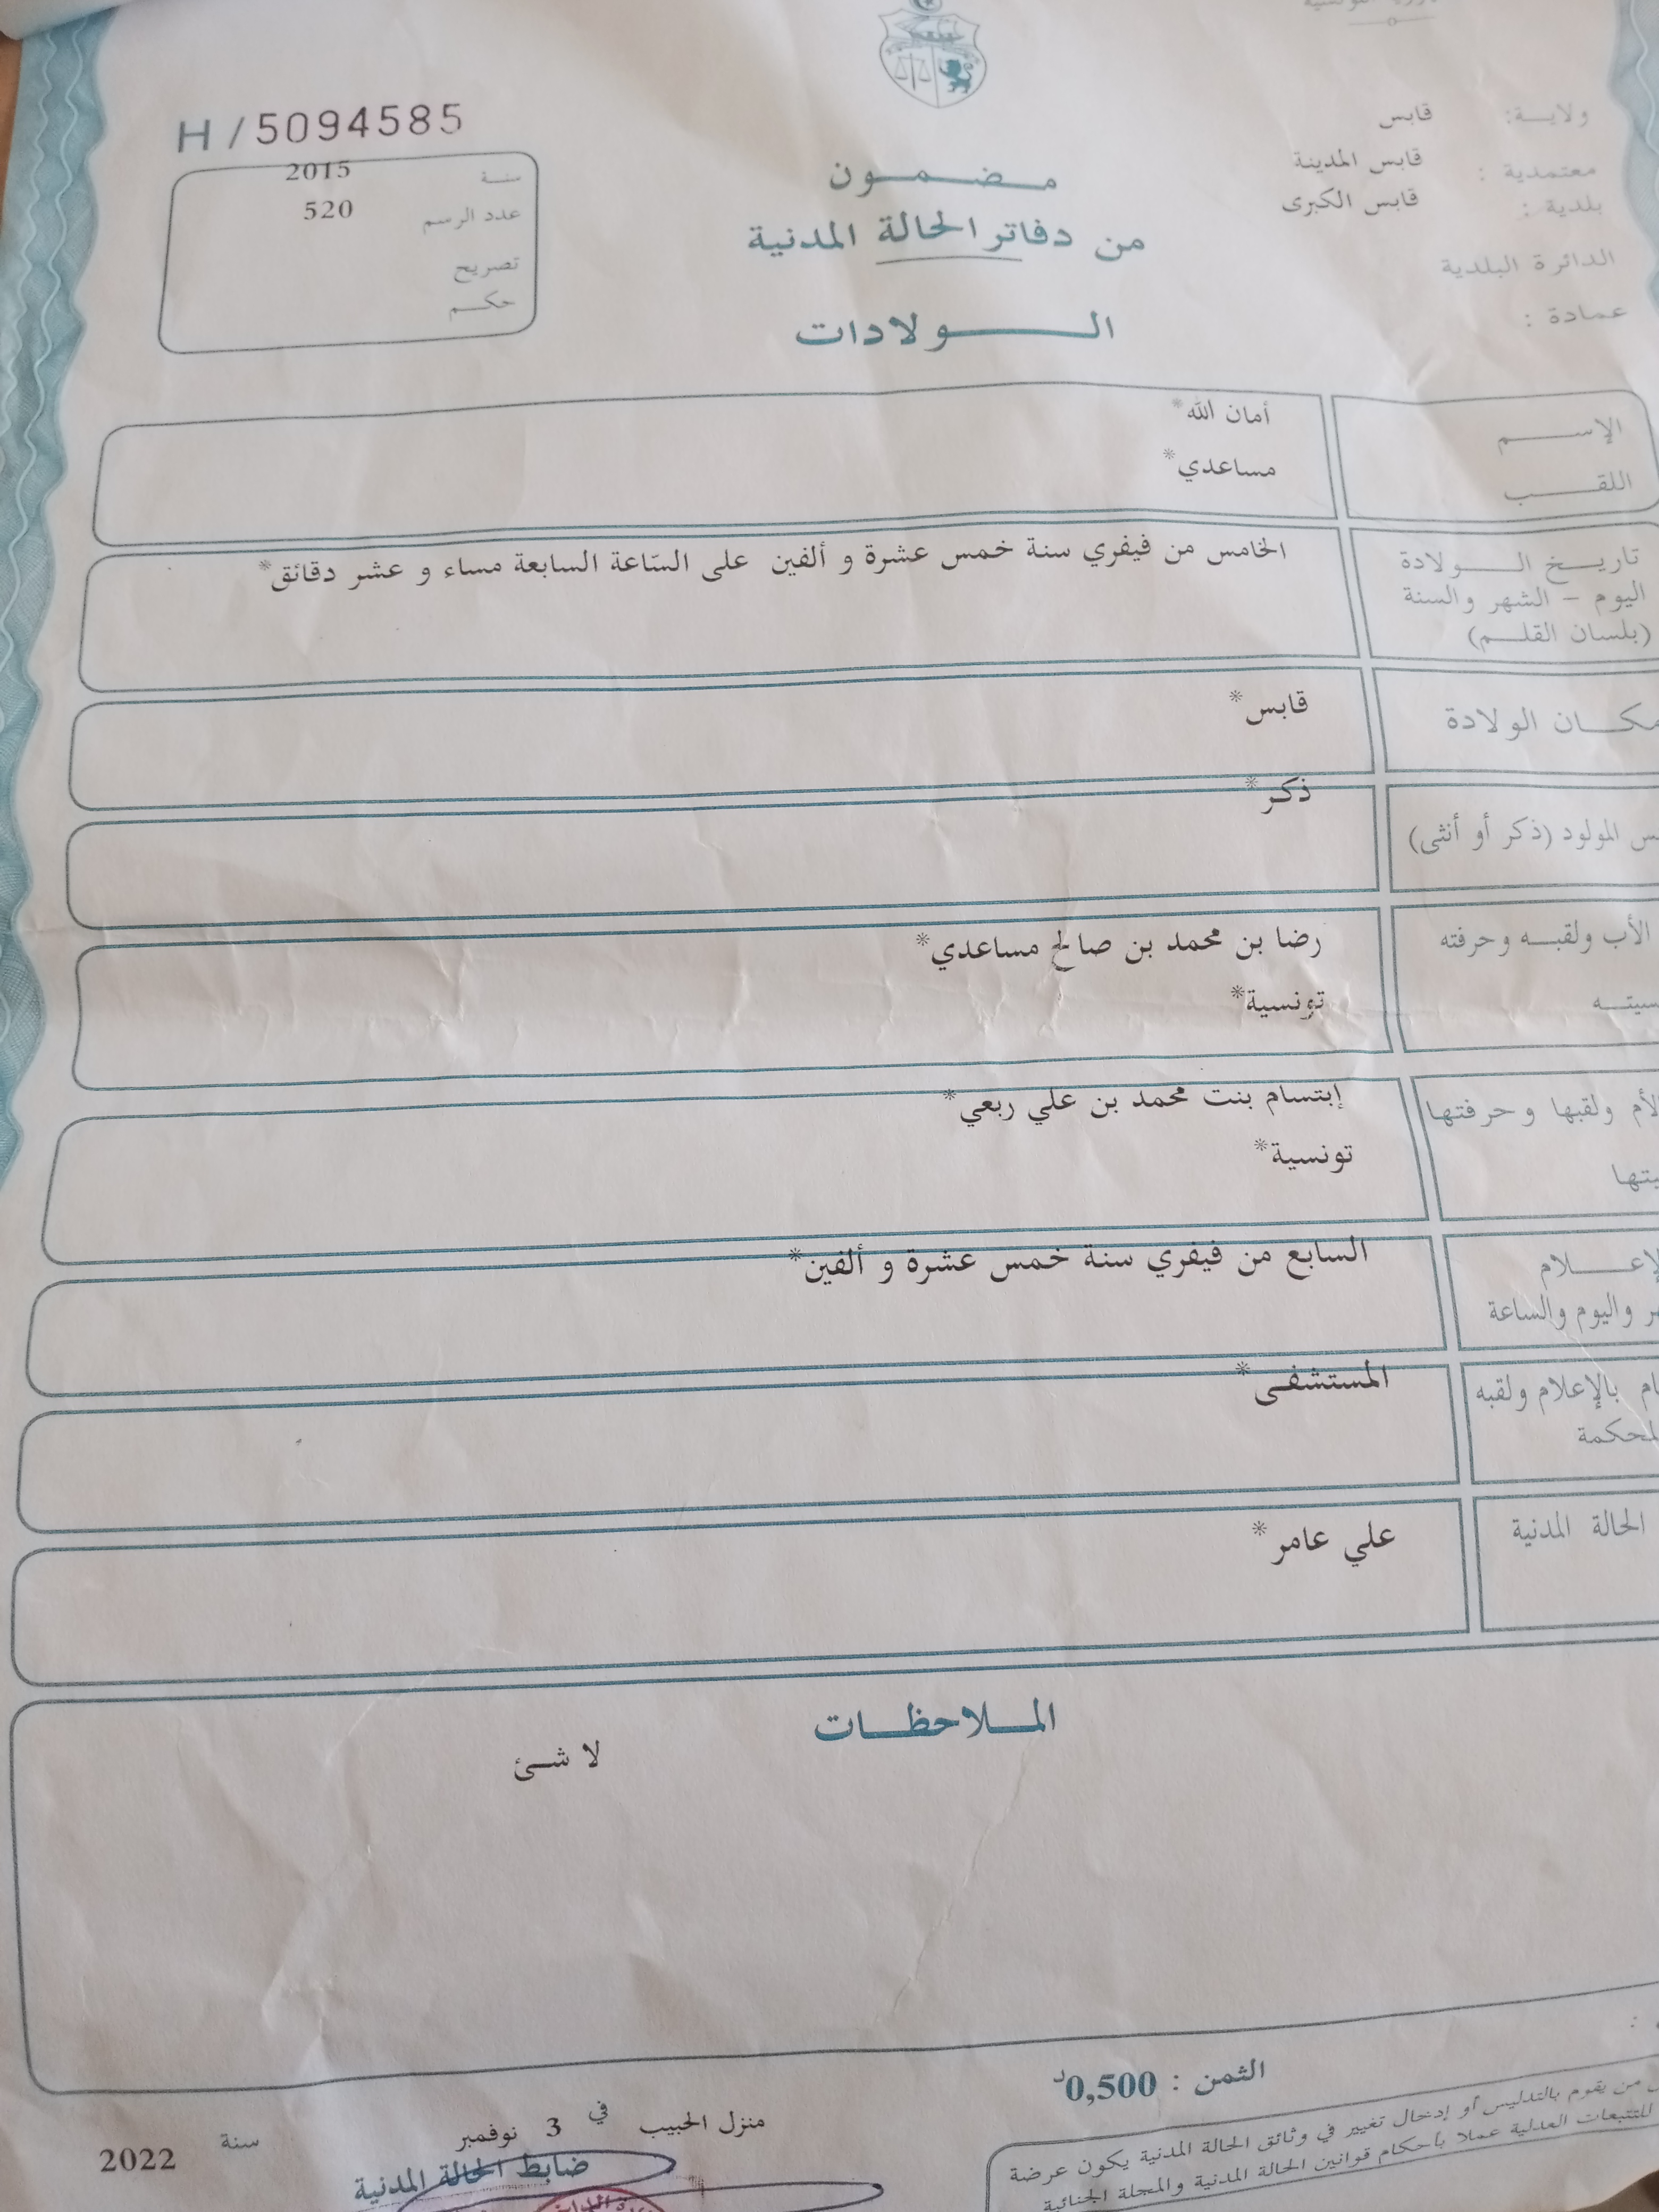 ولاية: قابس
معتمدية : قابس المدينة
بلدية : قابس الكبرى
الدائرة البلدية
عمادة :
H / 5094585
سنة 2015
عدد الرسم 520
تصريح
حكم
مضمون
من دفاتر الحالة المدنية
الولادات
الإسم أمان الله*
اللقب مساعدي*
تاريخ الولادة الخامس من فيفري سنة خمس عشرة و ألفين على السّاعة السابعة مساء و عشر دقائق*
اليوم - الشهر والسنة
(بلسان القلم)
مكان الولادة قابس*
المولود (ذكر أو أنثى) ذكر*
الأب ولقبه وحرفته رضا بن محمد بن صالح مساعدي*
تونسية*
الأم ولقبها وحرفتها إبتسام بنت محمد بن علي ربعي*
تونسية*
الإعلام السابع من فيفري سنة خمس عشرة و ألفين*
واليوم والساعة
بالإعلام ولقبه المستشفى*
الحالة المدنية علي عامر*
الملاحظات
لا شئ
الثمن : 0,500د
من يقوم بالتدليس أو إدخال تغيير في وثائق الحالة المدنية يكون عرضة
للتتبعات العدلية عملا بأحكام قوانين الحالة المدنية والمجلة الجنائية
منزل الحبيب في 3 نوفمبر سنة 2022
ضابط الحالة المدنية